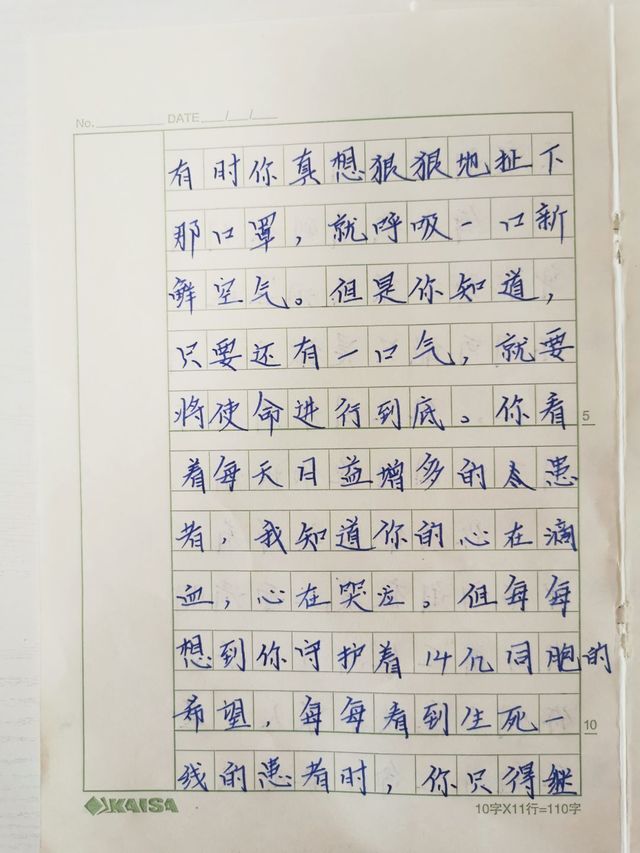 No. DATE / /
有时你真想狠狠地扯下
那口罩，就呼吸一口新
鲜空气。但是你知道，
只要还有一口气，就要
将使命进行到底。你看
5
着每天日益增多的患
者，我知道你的心在滴
血，心在哭泣。但每每
想到你守护着14亿同胞的
希望，每每看到生死一
10
线的患者时，你只得继
KAISA
10字X11行=110字